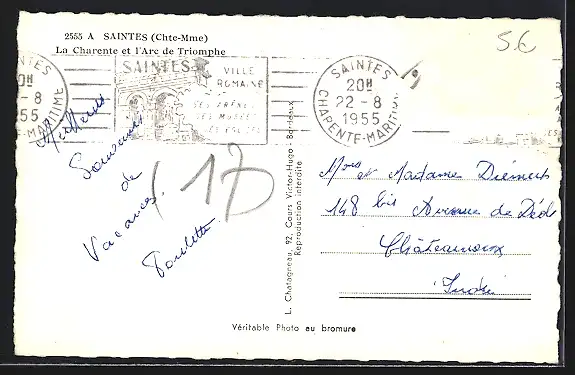 2555 A SAINTES (Chte-Mme)
La Charente et l'Arc de Triomphe
5€
SAINTES
VILLE
ROMAINE
SES ARÈNES
SES MUSÉES
SAINTES
20H
22-8
1955
CHARENTE-MARITIME
20H
-8
1955
-MARITIME
Meilleurs
Souvenirs
de
Vacances.
Paulette.
17
L. Chatagneau, 92, Cours Victor-Hugo - Bordeaux
Reproduction interdite
et Madame
148 bis Avenue de Déols
Châteauroux
Indre
Véritable Photo au bromure